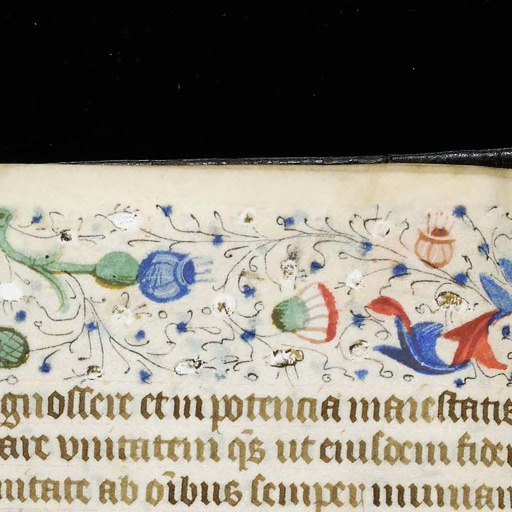 gnoscere et in potencia maiestatis
are vnitatem q̄s ut eiusdem fidei
mitate ab oībus semper muniam